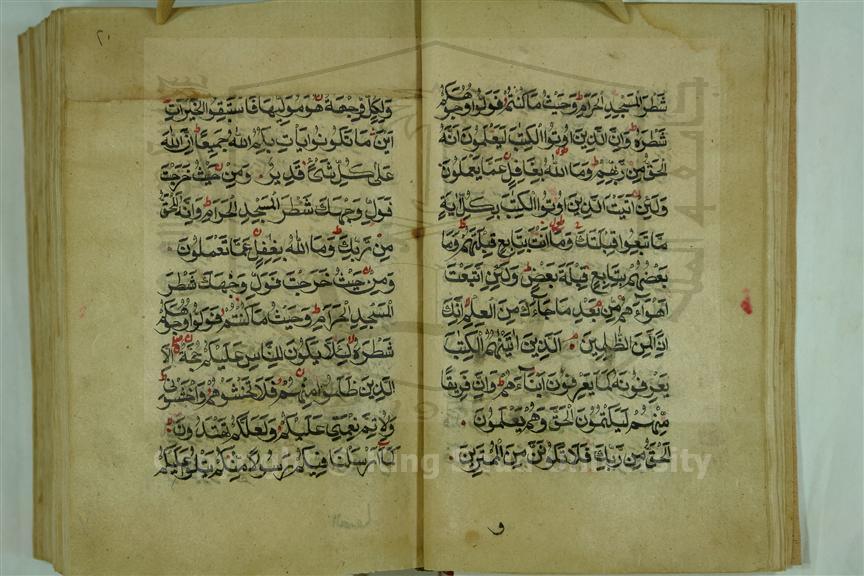 شَطْرَ الْمَسْجِدِ الْحَرَامِ وَحَيْثُ مَا كُنْتُمْ فَوَلُّوا وُجُوهَكُمْ
شَطْرَهُ وَاِنَّ الَّذِينَ اُوتُوا الْكِتٰبَ لَيَعْلَمُونَ اَنَّهُ
الْحَقُّ مِنْ رَبِّهِمْ وَمَا اللّٰهُ بِغَافِلٍ عَمَّا يَعْمَلُونَ
وَلَئِنْ اَتَيْتَ الَّذِينَ اُوتُوا الْكِتٰبَ بِكُلِّ اٰيَةٍ
مَا تَبِعُوا قِبْلَتَكَ وَمَا اَنْتَ بِتَابِعٍ قِبْلَتَهُمْ وَمَا
بَعْضُهُمْ بِتَابِعٍ قِبْلَةَ بَعْضٍ وَلَئِنِ اتَّبَعْتَ
اَهْوَاءَهُمْ مِنْ بَعْدِ مَا جَاءَكَ مِنَ الْعِلْمِ اِنَّكَ
اِذًا لَمِنَ الظّٰلِمِينَ الَّذِينَ اٰتَيْنٰهُمُ الْكِتٰبَ
يَعْرِفُونَهُ كَمَا يَعْرِفُونَ اَبْنَاءَهُمْ وَاِنَّ فَرِيقًا
مِنْهُمْ لَيَكْتُمُونَ الْحَقَّ وَهُمْ يَعْلَمُونَ
الْحَقُّ مِنْ رَبِّكَ فَلَا تَكُونَنَّ مِنَ الْمُمْتَرِينَ
و
٢٠
وَلِكُلٍّ وِجْهَةٌ هُوَ مُوَلِّيهَا فَاسْتَبِقُوا الْخَيْرَاتِ
اَيْنَ مَا تَكُونُوا يَاْتِ بِكُمُ اللّٰهُ جَمِيعًا اِنَّ اللّٰهَ
عَلٰى كُلِّ شَيْءٍ قَدِيرٌ وَمِنْ حَيْثُ خَرَجْتَ
فَوَلِّ وَجْهَكَ شَطْرَ الْمَسْجِدِ الْحَرَامِ وَاِنَّهُ لَلْحَقُّ
مِنْ رَبِّكَ وَمَا اللّٰهُ بِغٰفِلٍ عَمَّا تَعْمَلُونَ
وَمِنْ حَيْثُ خَرَجْتَ فَوَلِّ وَجْهَكَ شَطْرَ
الْمَسْجِدِ الْحَرَامِ وَحَيْثُ مَا كُنْتُمْ فَوَلُّوا وُجُوهَكُمْ
شَطْرَهُ لِئَلَّا يَكُونَ لِلنَّاسِ عَلَيْكُمْ حُجَّةٌ اِلَّا
الَّذِينَ ظَلَمُوا مِنْهُمْ فَلَا تَخْشَوْهُمْ وَاخْشَوْنِي
وَلِاُتِمَّ نِعْمَتِي عَلَيْكُمْ وَلَعَلَّكُمْ تَهْتَدُونَ
كَمَا اَرْسَلْنَا فِيكُمْ رَسُولًا مِنْكُمْ يَتْلُوا عَلَيْكُمْ
King Saud University